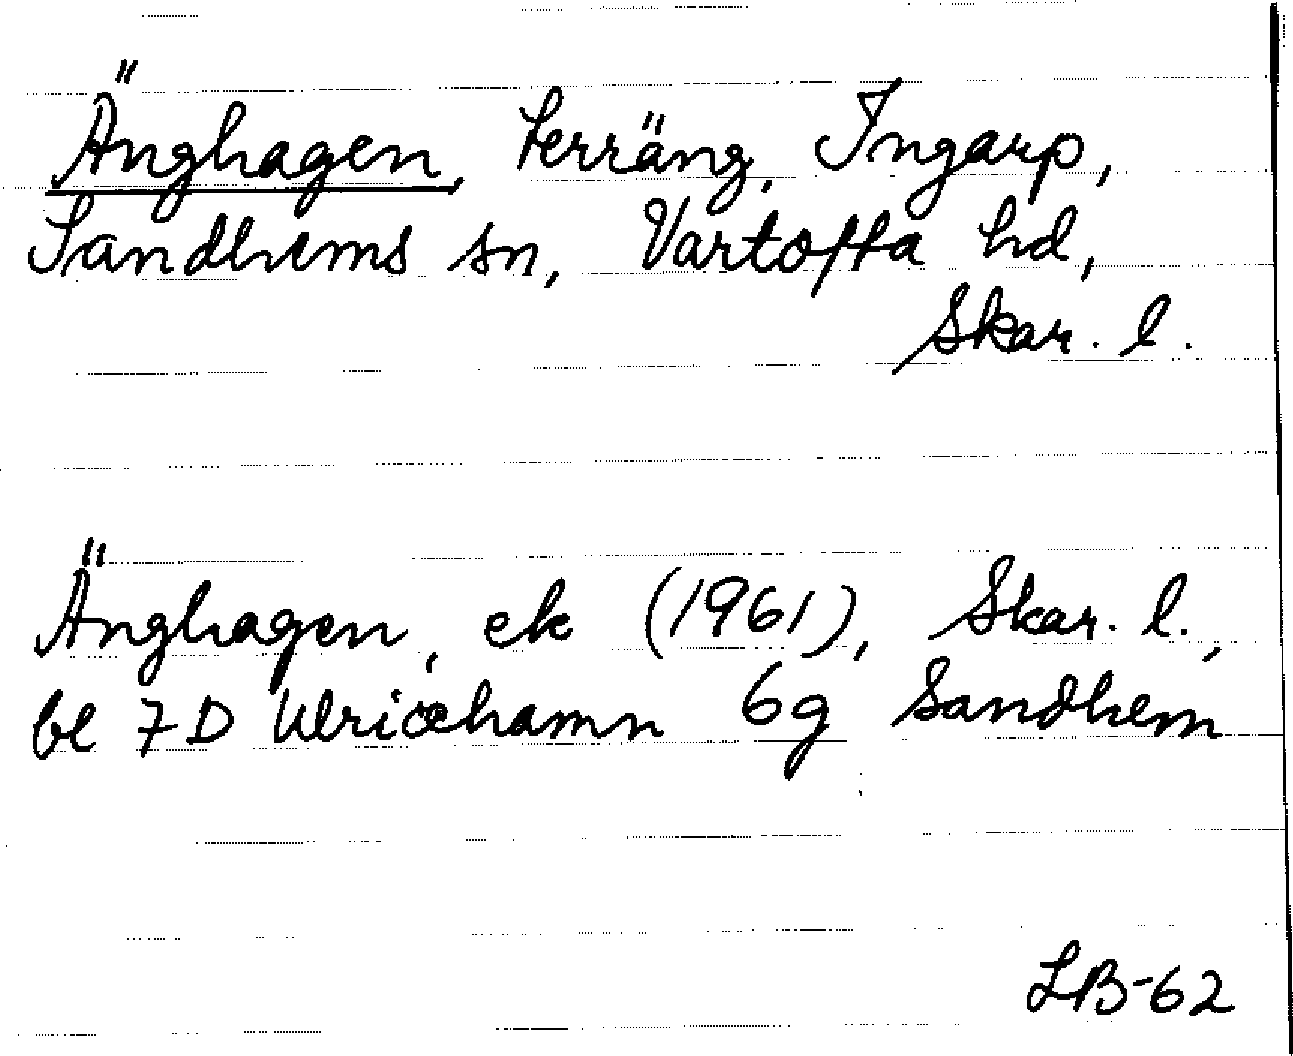 Änghagen, terräng, Ingarp,
Sandhems sn, Vartofta hd,
Skar. l.
Änghagen, ek (1961), Skar. l.,
bl 7D Ulricehamn 6g Sandhem
LB-62